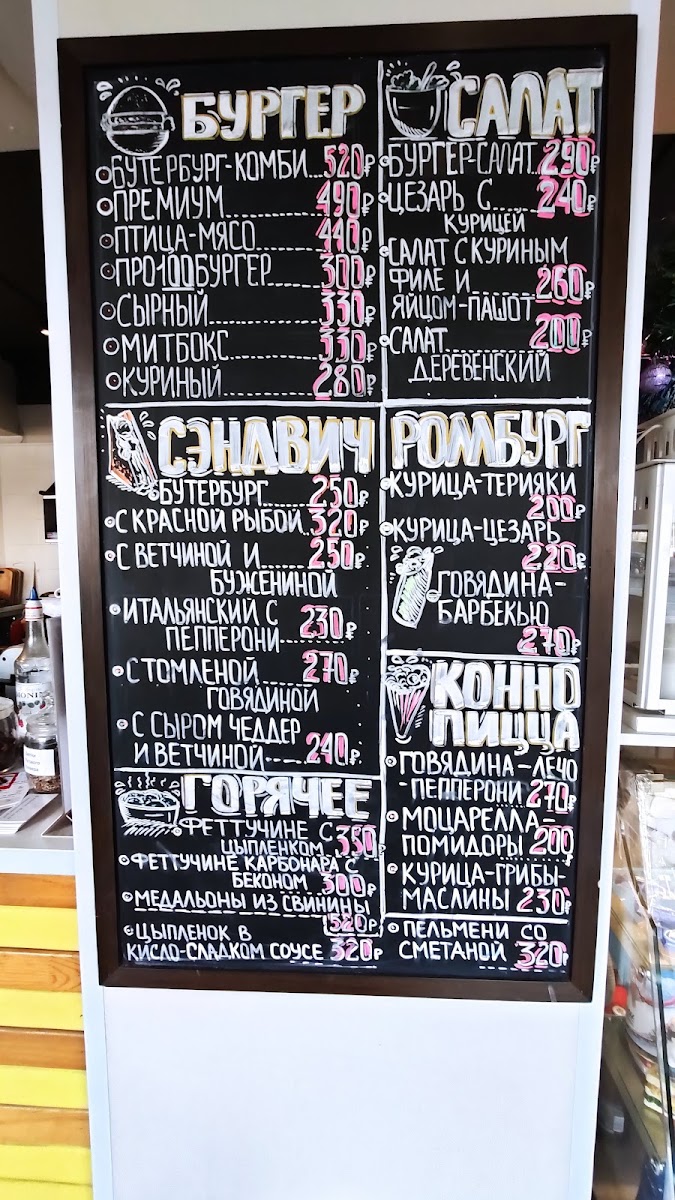 БУРГЕР
БУТЕРБУРГ-КОМБИ...520₽
ПРЕМИУМ...490₽
ПТИЦА-МЯСО...440₽
ПРО100БУРГЕР...300₽
СЫРНЫЙ...330₽
МИТБОКС...330₽
КУРИНЫЙ...280₽
САЛАТ
БУРГЕР-САЛАТ 290₽
ЦЕЗАРЬ С...240₽
КУРИЦЕЙ
САЛАТ С КУРИНЫМ
ФИЛЕ И...260₽
ЯЙЦОМ-ПАШОТ
САЛАТ...200₽
ДЕРЕВЕНСКИЙ
СЭНДВИЧ
БУТЕРБУРГ...250₽
С КРАСНОЙ РЫБОЙ...320₽
С ВЕТЧИНОЙ И...250₽
БУЖЕНИНОЙ
ИТАЛЬЯНСКИЙ С
ПЕППЕРОНИ...230₽
С ТОМЛЕНОЙ...270₽
ГОВЯДИНОЙ
С СЫРОМ ЧЕДДЕР
И ВЕТЧИНОЙ...240₽
РОМБУРГ
КУРИЦА-ТЕРИЯКИ
200₽
КУРИЦА-ЦЕЗАРЬ
220₽
ГОВЯДИНА-
БАРБЕКЬЮ
270₽
КОННО
ПИЦЦА
ГОВЯДИНА-ЛЕЧО
-ПЕППЕРОНИ 270₽
МОЦАРЕЛЛА-
ПОМИДОРЫ 200₽
КУРИЦА-ГРИБЫ-
МАСЛИНЫ 230₽
ГОРЯЧЕЕ
ФЕТТУЧИНЕ С
ЦЫПЛЕНКОМ 350₽
ФЕТТУЧИНЕ КАРБОНАРА С
БЕКОНОМ 300₽
МЕДАЛЬОНЫ ИЗ СВИНИНЫ
520₽
ЦЫПЛЕНОК В
КИСЛО-СЛАДКОМ СОУСЕ 320₽
ПЕЛЬМЕНИ СО
СМЕТАНОЙ 320₽